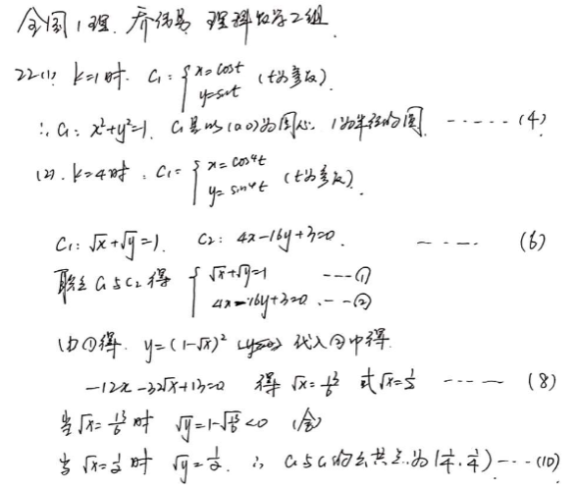 全国1理. 乔伟男 理科数学2组.
22(1) k=1时. C₁: { x=cost y=sint (t为参数).
∴ C₁: x²+y²=1. C₁是以(0,0)为圆心. 1为半径的圆. ------(4)
(2). k=4时. C₁= { x=cos⁴t y=sin⁴t (t为参数).
C₁: √x+√y=1. C₂: 4x-16y+3=0. ----- (6)
联立C₁与C₂得 { √x+√y=1 ---① 4x-16y+3=0 .--②
由①得. y=(1-√x)² 代入②中得.
-12x-32√x+13=0 得 √x=13/6 或√x=1/2 ------ (8)
当√x=13/6时 √y=1-√13/6<0 (舍)
当√x=1/2时 √y=1/2. ∴ C₁与C₂的公共点为(1/4, 1/4)---(10)